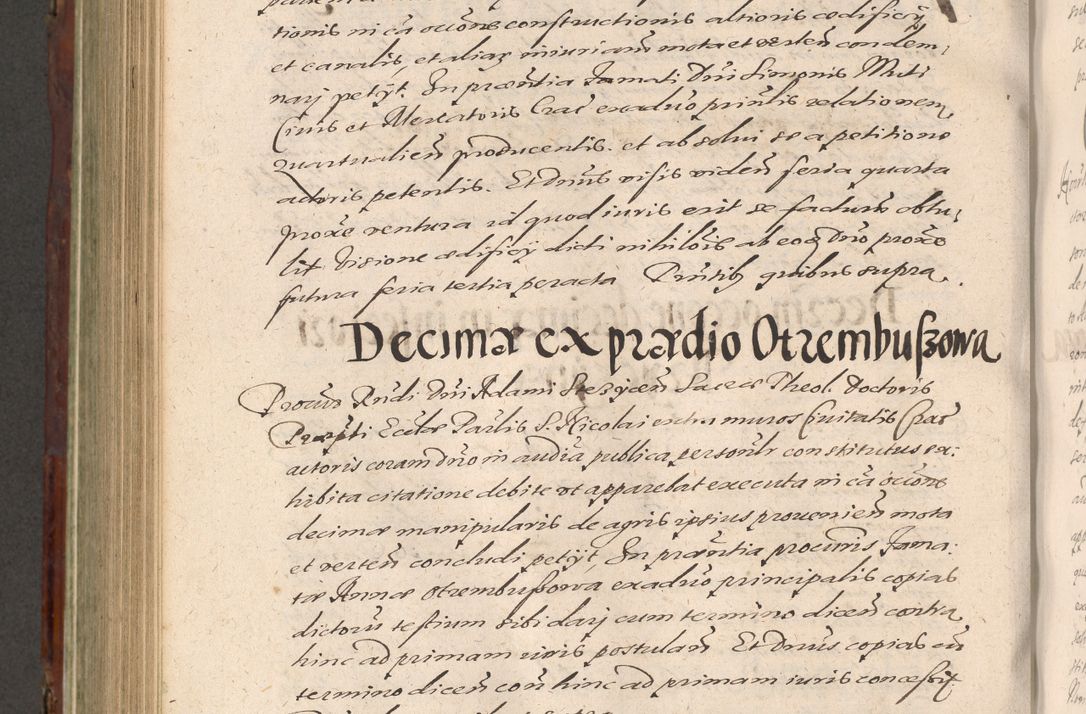 tionis in ca͞ occ͞one constructionis altioris ædificij
et canalis, et aliaꝝ iniuriarum mota et verten͞ condem,
narj petijt. In præn͞tia famati Dn͞i Simonis Muti
Ciuis et Mercatoris Crac͞ ex aduo prin͞lis relationem
quartualien͞ producentis. et absolui se a petitione
actoris petentis. Et Dn͞us visis viden͞ feria quarta
proxe ventura id quod iuris erit se facturu͞ obtu,
lit visione ædificij dicti nihilo͞is ab eoꝝ Dn͞o proxe
futura feria tertia peracta Pn͞tib quibus supra.
Decimæ ex prædio Otrembuszowa
Procur͞ Rn͞di Dn͞i Adami Stezycen͞ Sacræ Theol. Doctoris
Præpti Eccl͞æ Par͞lis S. Nicolai extra muros Ciuitatis Crac͞
actoris coram dn͞o in audi͞a publica person͞lr constitutus ex:
hibita citatione debite vt apparebat executa in ca͞ occ͞one
decimæ manipularis de agris ipsius prouenien͞ mota
et verten͞ concludi petijt, In præn͞tia procur͞is fama:
tæ Annæ Otrembuszowa ex aduo principalis copias
dictoru͞ testium sibi darj cum termino dicen͞ contra
hinc ad primam iuris postulan͞ Et Dn͞us copias cu͞
termino dicen͞ con͞ hinc ad primam iuris concessit,